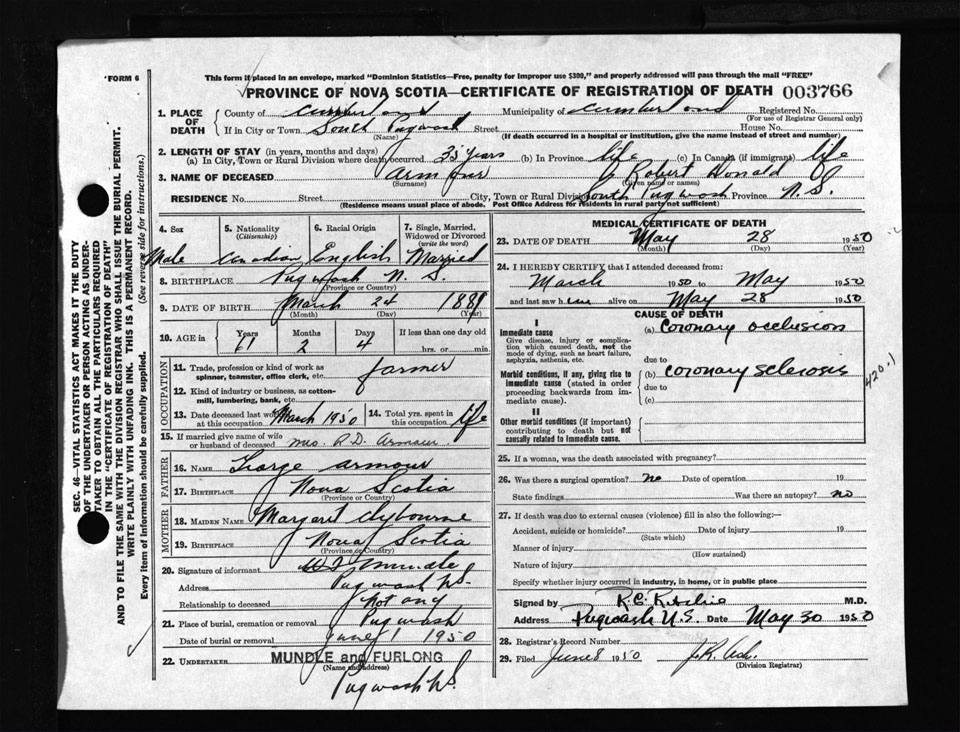 FORM 6
This form if placed in an envelope, marked "Dominion Statistics—Free, penalty for improper use $300," and properly addressed will pass through the mail "FREE"
PROVINCE OF NOVA SCOTIA—CERTIFICATE OF REGISTRATION OF DEATH 003766
SEC. 46—VITAL STATISTICS ACT MAKES IT THE DUTY
OF THE UNDERTAKER OR PERSON ACTING AS UNDER-
TAKER TO OBTAIN ALL THE PARTICULARS REQUIRED
IN THE "CERTIFICATE OF REGISTRATION OF DEATH"
AND TO FILE THE SAME WITH THE DIVISION REGISTRAR WHO SHALL ISSUE THE BURIAL PERMIT.
WRITE PLAINLY WITH UNFADING INK. THIS IS A PERMANENT RECORD.
Every item of information should be carefully supplied. (See reverse side for instructions.)
1. PLACE OF DEATH
County of Cumberland Municipality of Cumberland Registered No.
(For use of Registrar General only)
If in City or Town South Pugwash Street House No.
(Name) (If death occurred in a hospital or institution, give the name instead of street and number)
2. LENGTH OF STAY (in years, months and days)
(a) In City, Town or Rural Division where death occurred 35 years (b) In Province life (c) In Canada (if immigrant) life
3. NAME OF DECEASED Armour Robert Donald
(Surname) (Given name or names)
RESIDENCE No. Street City, Town or Rural Division South Pugwash Province N. S.
(Residence means usual place of abode. Post Office Address for residents in rural parts not sufficient)
4. Sex
Male
5. Nationality
(Citizenship)
Canadian
6. Racial Origin
English
7. Single, Married,
Widowed or Divorced
(write the word)
Married
8. BIRTHPLACE Pugwash N. S.
(Province or Country)
9. DATE OF BIRTH March 24 1889
(Month) (Day) (Year)
10. AGE in
Years Months Days If less than one day old
61 2 4 hrs. or min.
OCCUPATION
11. Trade, profession or kind of work as
spinner, teamster, office clerk, etc. farmer
12. Kind of industry or business, as cotton-
mill, lumbering, bank, etc.
13. Date deceased last worked
at this occupation March 1950
14. Total yrs. spent in
this occupation life
15. If married give name of wife
or husband of deceased Mrs. R. D. Armour
FATHER
16. NAME George Armour
17. BIRTHPLACE Nova Scotia
(Province or Country)
MOTHER
18. MAIDEN NAME Margaret Clybourne
19. BIRTHPLACE Nova Scotia
(Province or Country)
20. Signature of informant Mundle
Address Pugwash N.S.
Relationship to deceased Not any
21. Place of burial, cremation or removal Pugwash
Date of burial or removal June 1 1950
22. UNDERTAKER MUNDLE and FURLONG
(Name and address)
Pugwash N.S.
MEDICAL CERTIFICATE OF DEATH
23. DATE OF DEATH May 28 1950
(Month) (Day)
24. I HEREBY CERTIFY that I attended deceased from:
March 1950 to May 1950
and last saw him alive on May 28 1950
CAUSE OF DEATH
I
Immediate cause
Give disease, injury or complica-
tion which caused death, not the
mode of dying, such as heart failure,
asphyxia, asthenia, etc.
(a) Coronary occlusion
due to
Morbid conditions, if any, giving rise to
immediate cause (stated in order
proceeding backwards from im-
mediate cause).
(b) coronary sclerosis
due to
(c)
420.1
II
Other morbid conditions (if important)
contributing to death but not
causally related to immediate cause.
25. If a woman, was the death associated with pregnancy?
26. Was there a surgical operation? no Date of operation 19
State findings Was there an autopsy? no
27. If death was due to external causes (violence) fill in also the following:—
Accident, suicide or homicide? Date of injury 19
(State which)
Manner of injury
(How sustained)
Nature of injury
Specify whether injury occurred in industry, in home, or in public place
Signed by M.D.
Address Pugwash N.S. Date May 30 1950
28. Registrar's Record Number
29. Filed June 8 1950
(Division Registrar)